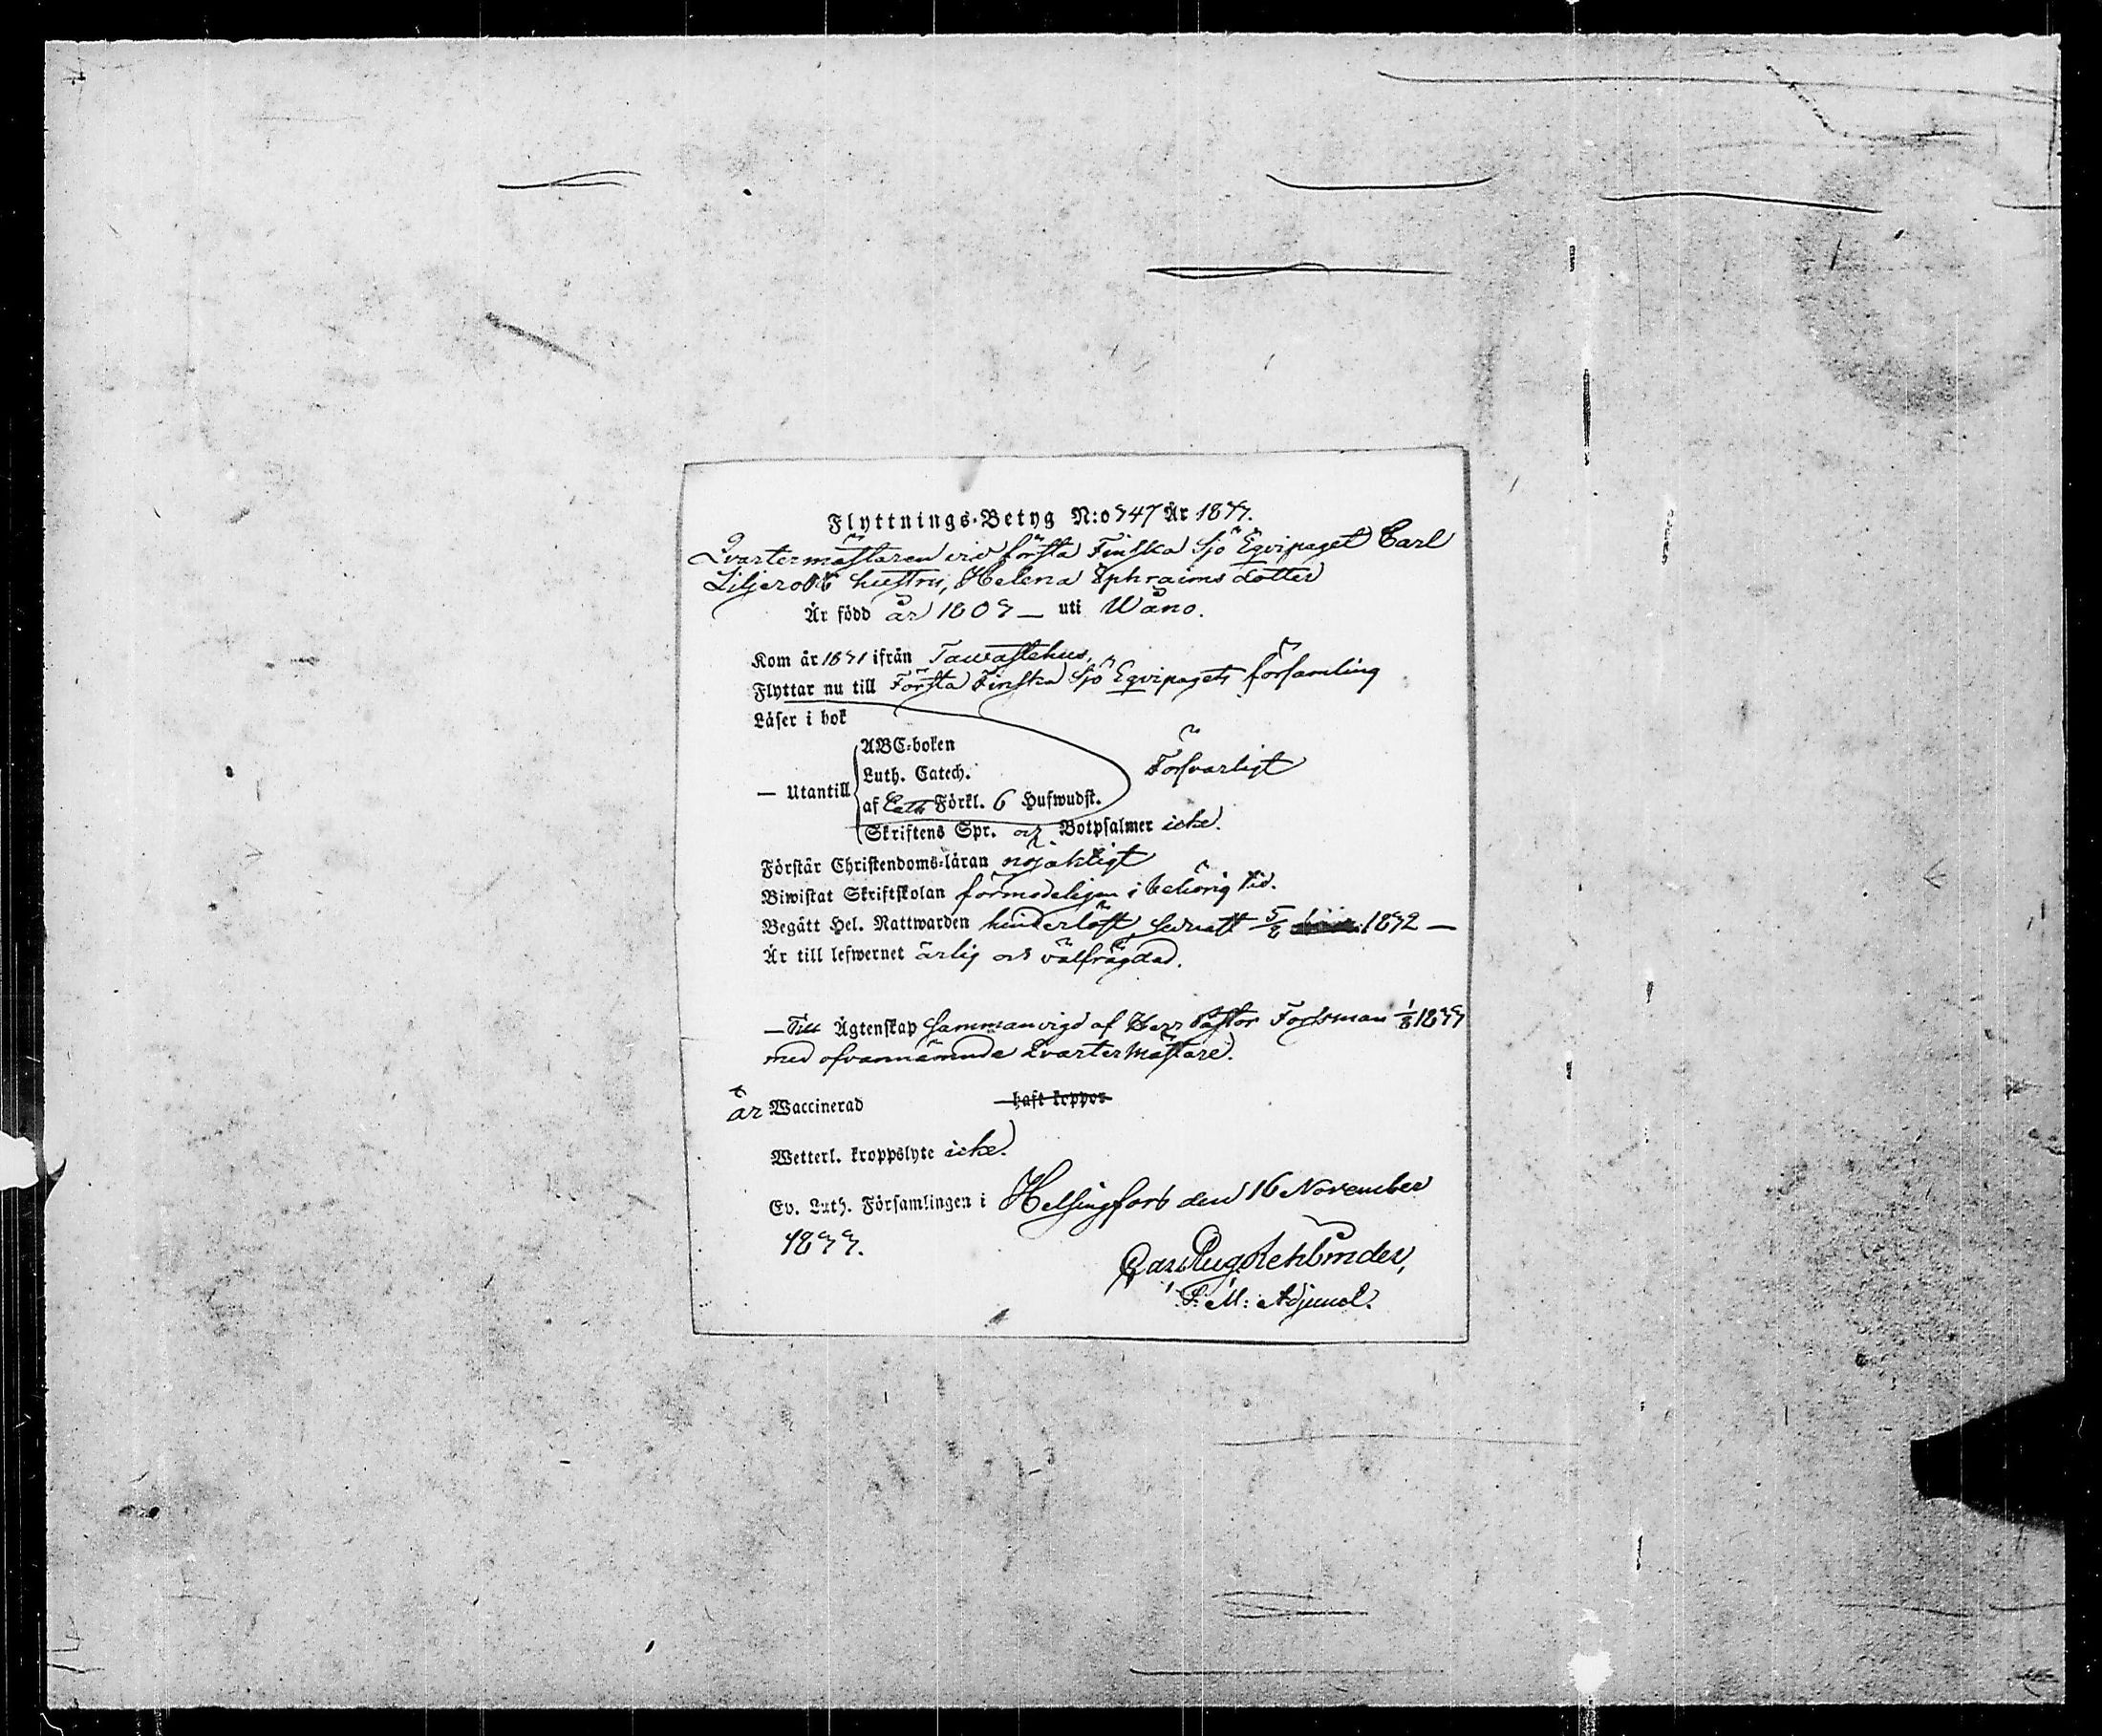 Flyttnings-Betyg N:o 347 År 1833.
Qvartermästaren vid första Finska Sjö Eqvipaget Carl
Liljeroths hustru, Helena Ephraimsdotter
Är född år 1803 — uti Wånå.
Kom år 1831 ifrån Tawastehus,
Flyttar nu till Första Finska Sjö Eqvipagets församling
Läser i bok
ABC-boken
Luth. Catech. Försvarligt
— Utantill
af Cate Förkl. 6 Hufwudst.
Skriftens Spr. och Botpsalmer icke.
Förstår Christendoms-läran nöjaktigt
Biwistat Skriftskolan förmodeligen i behörig tid.
Begått Hel. Nattwarden hinderlöst, sednast 5/8 1832 —
Är till lefwernet ärlig och välfrägdad.
— Till Ägtenskap sammanvigd af Herr Pastor Forsman 1/8 1833
med ofvannämnde Qvartermästare.
är Waccinerad haft koppor
Wetterl. kroppslyte icke.
Ev. Luth. Församlingen i Helsingfors den 16 November
1833.
Carl Aug. Rehbinder,
S: M: Adjunct.